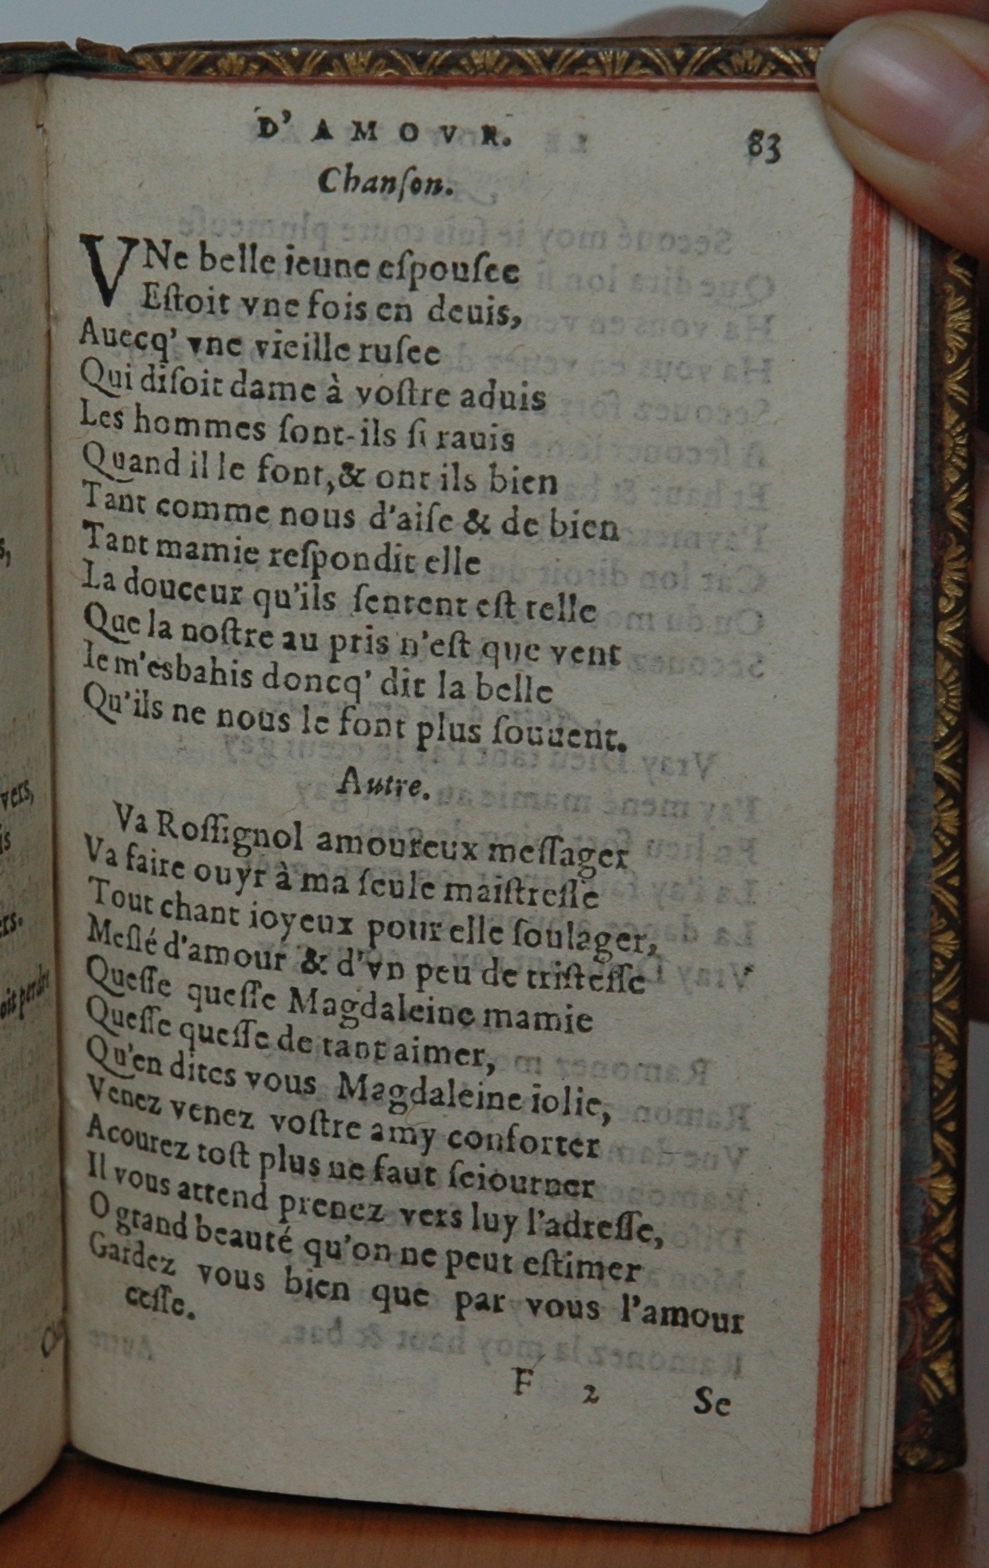 D' A M O V R. 83
Chanſon.
VNe belle ieune eſpouſee
Eſtoit vne fois en deuis,
Auecq' vne vieille ruſee
Qui diſoit dame à voſtre aduis
Les hommes ſont-ils ſi rauis
Quand il le font, & ont ils bien
Tant comme nous d'aiſe & de bien
Tant mamie reſpondit elle
La douceur qu'ils ſentent eſt telle
Que la noſtre au pris n'eſt que vent
Ie m'esbahis doncq' dit la belle
Qu'ils ne nous le font plus ſouuent.
Autre.
Va Roſſignol amoureux meſſager
Va faire ouyr à ma ſeule maiſtreſſe
Tout chant ioyeux pour elle ſoulager,
Meſlé d'amour & d'vn peu de triſteſſe
Queſſe queſſe Magdaleine mamie
Queſſe queſſe de tant aimer,
Qu'en dites vous Magdaleine iolie,
Venez venez voſtre amy conforter
Acourez toſt plus ne faut ſeiourner
Il vous attend prenez vers luy l'adreſſe,
O grand beauté qu'on ne peut eſtimer
Gardez vous bien que par vous l'amour
ceſſe.
F 2 Se